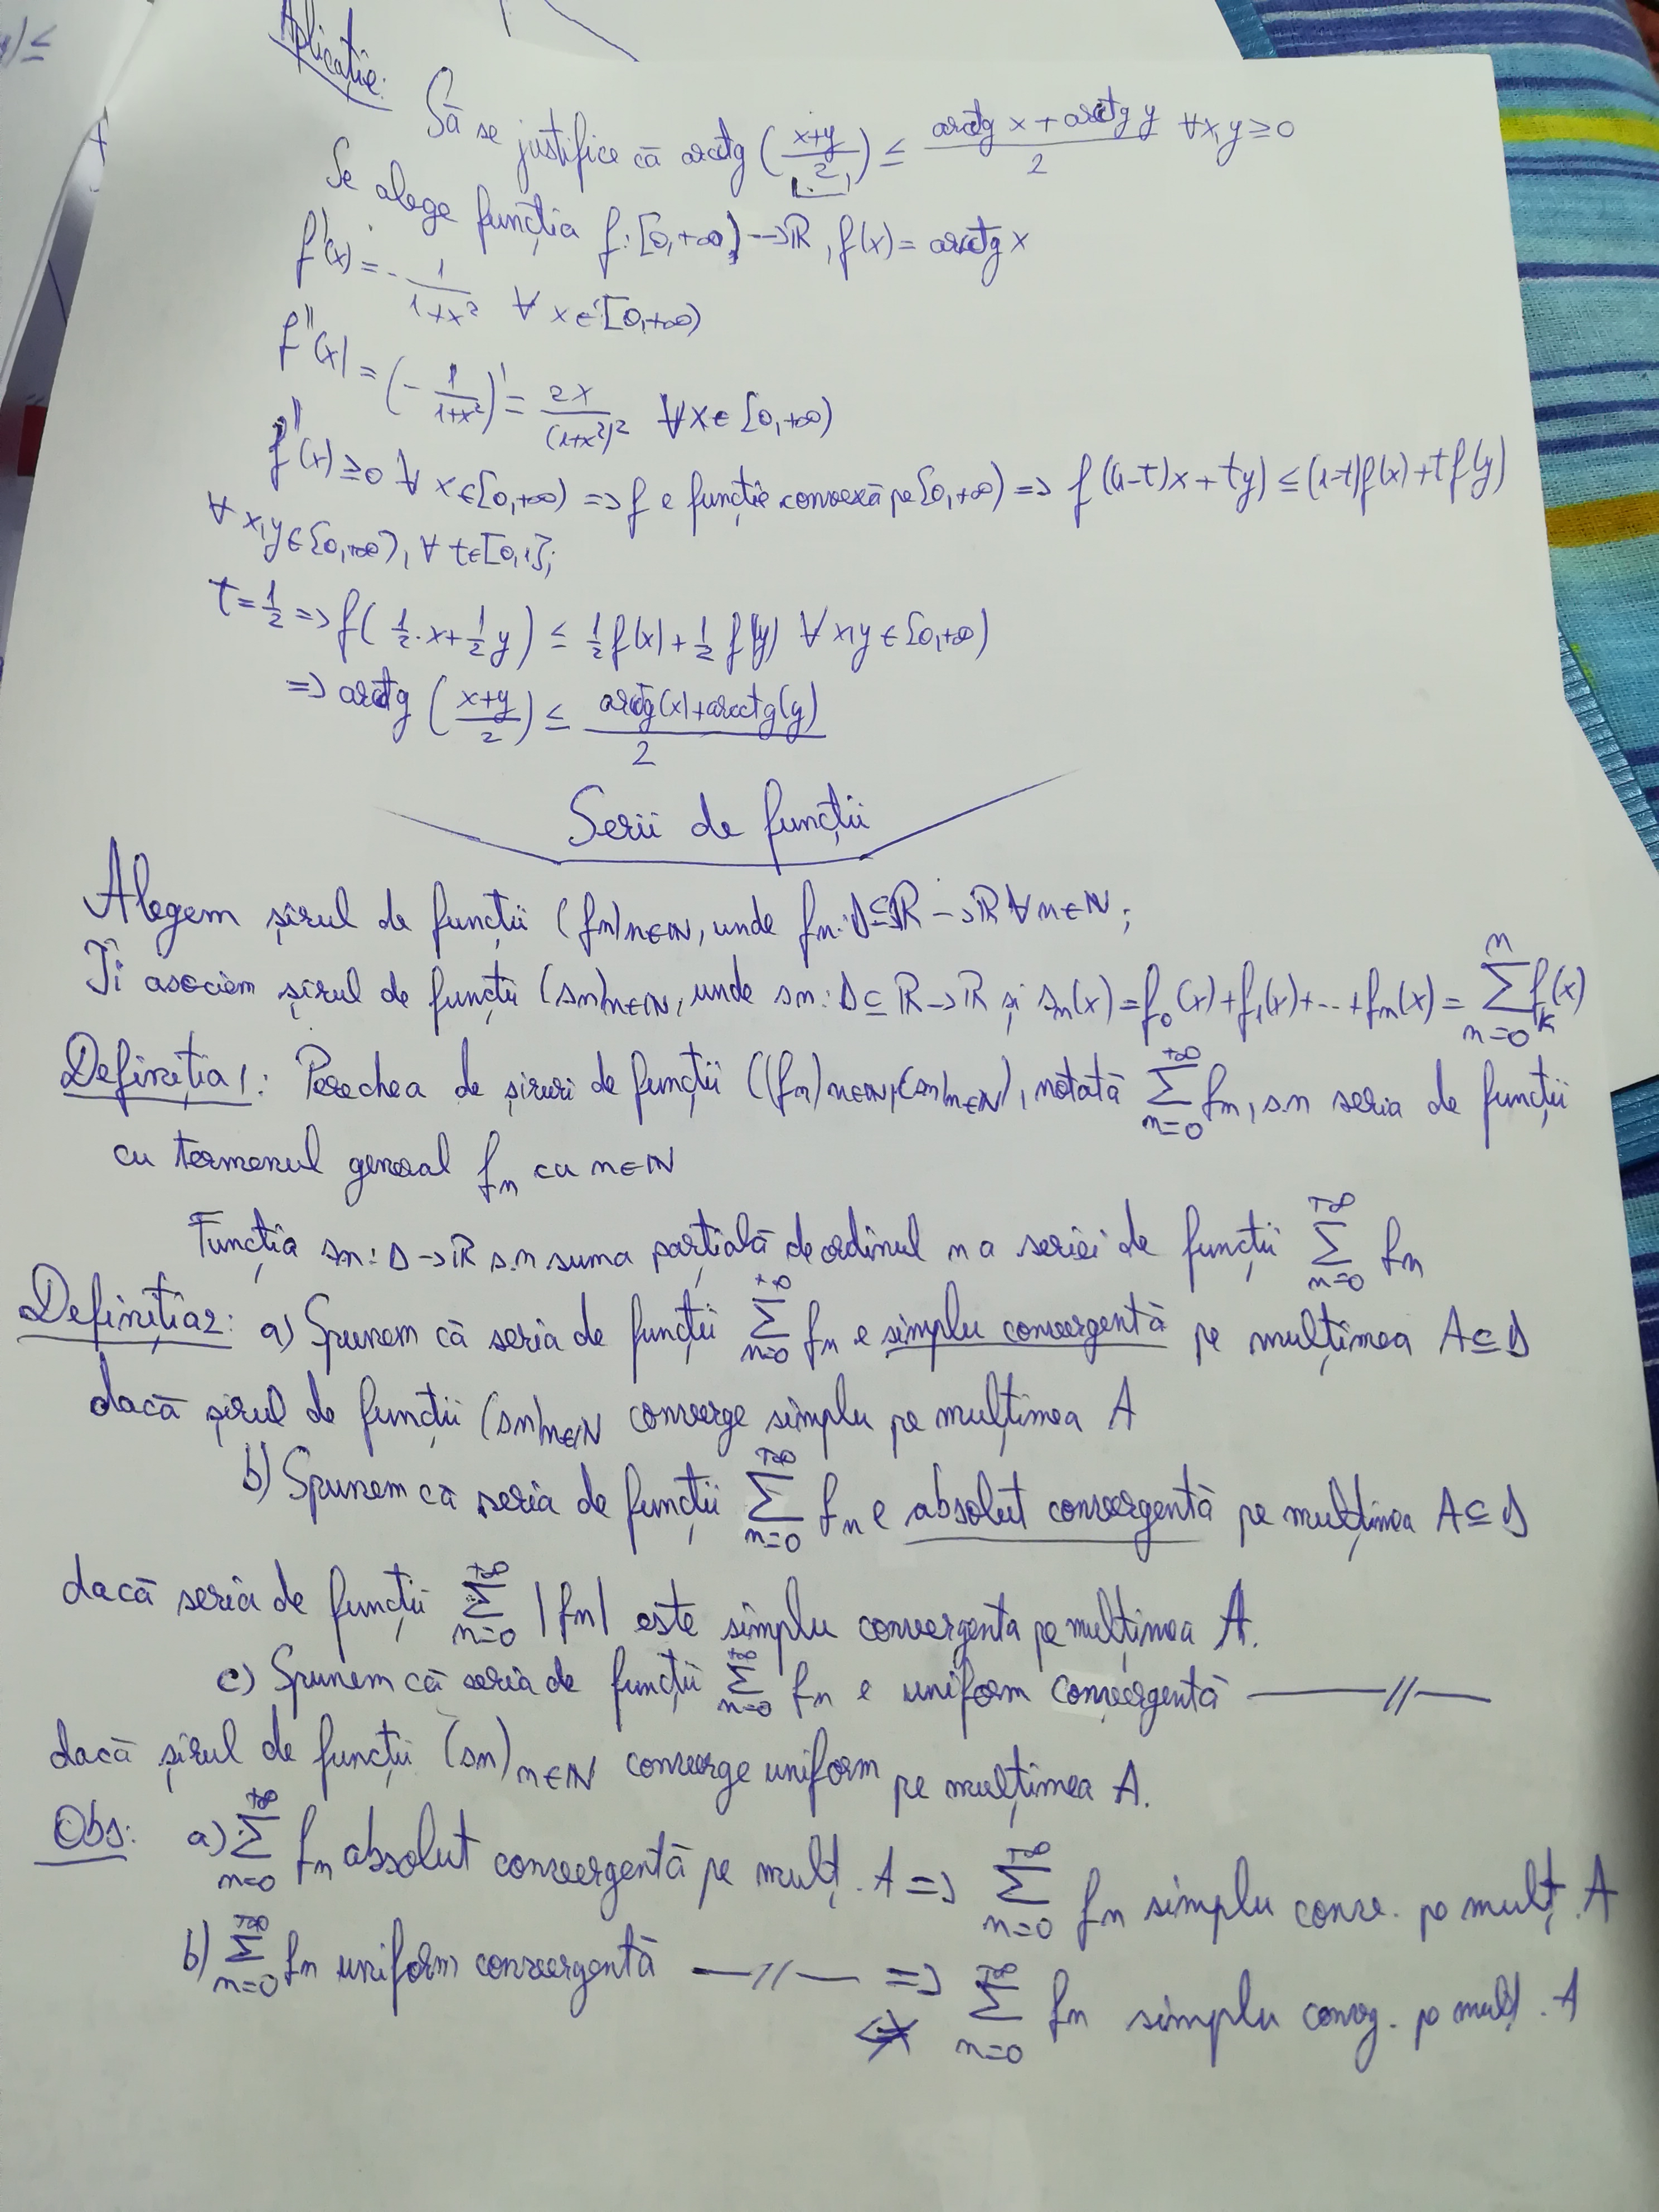 Aplicație:
Să se justifice că arcctg (x+y/2) ≤ arcctg x + arcctg y/2 ∀x,y≥0
Se alege funcția f:[0,+∞)→ℝ, f(x) = arcctg x
f'(x) = - 1/1+x² ∀ x∈[0,+∞)
f''(x) = (- 1/1+x²)' = 2x/(1+x²)² ∀x∈[0,+∞)
f''(x) ≥0 ∀ x∈[0,+∞) => f e funcție convexă pe [0,+∞) => f((1-t)x+ty) ≤ (1-t)f(x)+tf(y)
∀ x,y∈[0,+∞), ∀ t∈[0,1];
t=1/2 => f(1/2·x+1/2y) ≤ 1/2f(x)+1/2 f(y) ∀ x,y ∈[0,+∞)
=> arcctg (x+y/2) ≤ arcctg(x)+arcctg(y)/2
Serii de funcții
Alegem șirul de funcții (fn)n∈ℕ, unde fn:D⊆ℝ→ℝ ∀n∈ℕ;
Îi asociem șirul de funcții (sn)n∈ℕ, unde sn:D⊆ℝ→ℝ și sn(x)=f₀(x)+f₁(x)+...+fn(x) = ∑ⁿn=0 fk(x)
Definiția1: Perechea de șiruri de funcții ((fn)n∈ℕ,(sn)n∈ℕ), notată ∑+∞n=0 fn, s.n seria de funcții
cu termenul general fn cu n∈ℕ
Funcția sn:D→ℝ s.n suma parțială de ordinul n a seriei de funcții ∑+∞n=0 fn
Definiția2: a) Spunem că seria de funcții ∑+∞n=0 fn e simplu convergentă pe mulțimea A⊆D
dacă șirul de funcții (sn)n∈ℕ converge simplu pe mulțimea A
b) Spunem că seria de funcții ∑+∞n=0 fn e absolut convergentă pe mulțimea A⊆D
dacă seria de funcții ∑+∞n=0 |fn| este simplu convergenta pe mulțimea A.
c) Spunem că seria de funcții ∑+∞n=0 fn e uniform convergentă —//—
dacă șirul de funcții (sn)n∈ℕ converge uniform pe mulțimea A.
Obs: a) ∑+∞n=0 fn absolut convergentă pe mulț. A => ∑+∞n=0 fn simplu conv. pe mulț. A
b) ∑+∞n=0 fn uniform convergentă —//— => ⇍ ∑+∞n=0 fn simplu convg. pe mulț. A